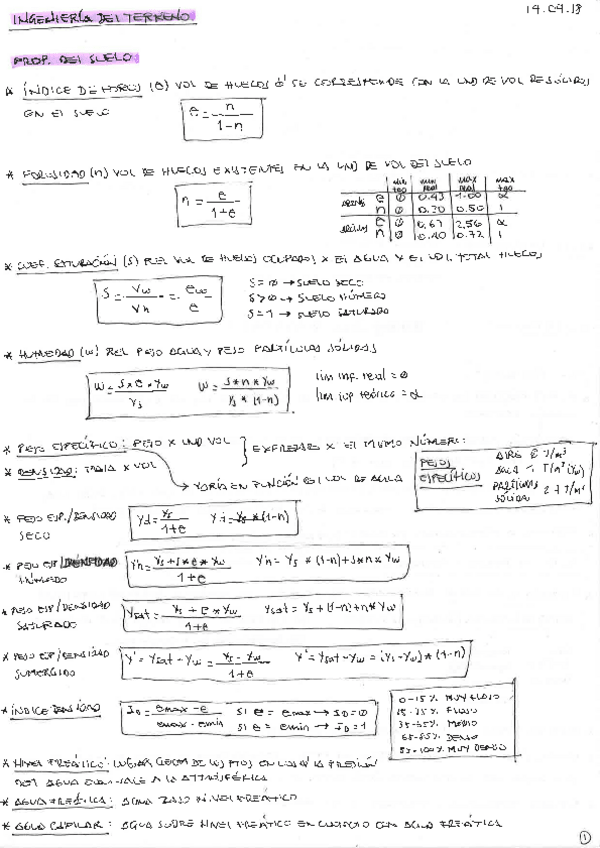 INGENIERÍA DEL TERRENO
19.09.18
PROP. DEL SUELO
* ÍNDICE DE HUECOS (e) VOL DE HUECOS Q' SE CORRESPONDE CON LA UND DE VOL DE SÓLIDOS
EN EL SUELO e = n / 1-n
* POROSIDAD (n) VOL DE HUECOS EXISTENTES EN LA UND DE VOL DEL SUELO
n = e / 1+e
min teo min real max real max teo
arenas e 0 0.43 1.00 α
n 0 0.30 0.50 1
arcillas e 0 0.67 2.56 α
n 0 0.40 0.72 1
* COEF. SATURACIÓN (S) REL VOL DE HUECOS OCUPADO X EL AGUA Y EL VOL TOTAL HUECOS
S = Vw / Vh = ew / e
S = 0 → SUELO SECO
S > 0 → SUELO HÚMEDO
S = 1 → SUELO SATURADO
* HUMEDAD (w) REL PESO AGUA Y PESO PARTÍCULAS SÓLIDAS
w = S*e*γw / γs w = S*n*γw / γs*(1-n)
lim inf. real = 0
lim sup teórico = α
* PESO ESPECÍFICO: PESO X UND VOL } EXPRESADOS X EL MISMO NÚMERO:
* DENSIDAD: MASA X VOL
→ VARÍA EN FUNCIÓN DEL VOL DE AGUA
PESOS ESPECÍFICOS
AIRE 0 T/m³
AGUA 1 T/m³ (γw)
PARTÍCULAS SÓLIDAS 2.7 T/m³
* PESO ESP./DENSIDAD SECO
γd = γs / 1+e γd = γs*(1-n)
* PESO ESP/DENSIDAD HÚMEDO
γh = γs+S*e*γw / 1+e γh = γs*(1-n)+S*n*γw
* PESO ESP/DENSIDAD SATURADO
γsat = γs+e*γw / 1+e γsat = γs*(1-n)+n*γw
* PESO ESP/DENSIDAD SUMERGIDO
γ' = γsat-γw = γs-γw / 1+e γ' = γsat-γw = (γs-γw)*(1-n)
* ÍNDICE DENSIDAD
ID = emax-e / emax-emin
SI e = emax → ID=0
SI e = emin → ID=1
0-15% MUY FLOJO
15-35% FLOJO
35-65% MEDIO
65-85% DENSO
85-100% MUY DENSO
* NIVEL FREÁTICO: LUGAR GEOM DE LOS PTOS EN LOS Q' LA PRESIÓN
DEL AGUA EQUIVALE A LA ATMOSFÉRICA
* AGUA FREÁTICA: AGUA BAJO NIVEL FREÁTICO
* AGUA CAPILAR: AGUA SOBRE NIVEL FREÁTICO EN CONTACTO CON AGUA FREÁTICA
1